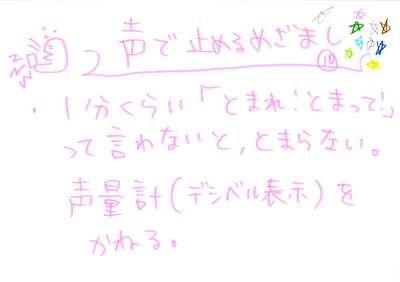 声で止めるめざまし
⑩
・1分くらい「とまれ!とまって!」
って言わないと,とまらない。
声量計(デシベル表示)を
かねる。